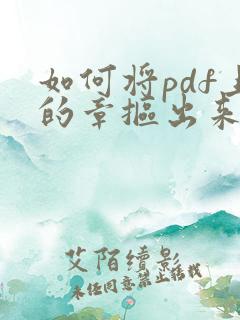 如何将pdf
的章抠出来
艾陌续影
未经同意禁止转载